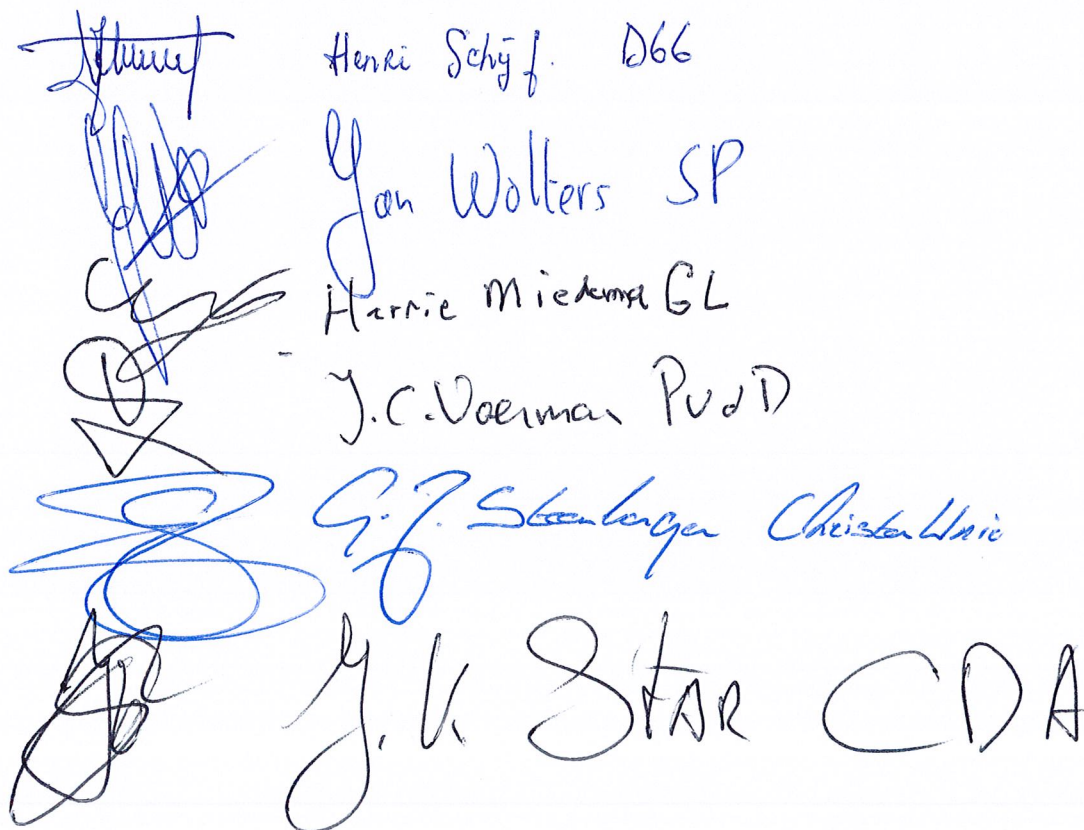 Henri Schijf. D66
Jan Wolters SP
Harrie Miedema GL
J.C. Voerman PvdD
G.J. Steenbergen ChristenUnie
J.K STAR CDA